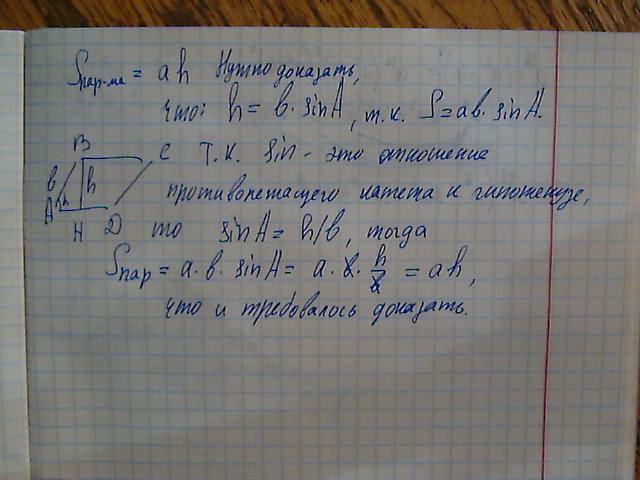 Sпар-ма = ah Нужно доказать,
что: h = b · sinA, т.к. S=ab·sinA.
B C Т.к. sin - это отношение
b h
противолежащего катета к гипотенузе,
A H D то sinA = h/b, тогда
Sпар = a·b·sinA = a·b· h/b = ah,
что и требовалось доказать.